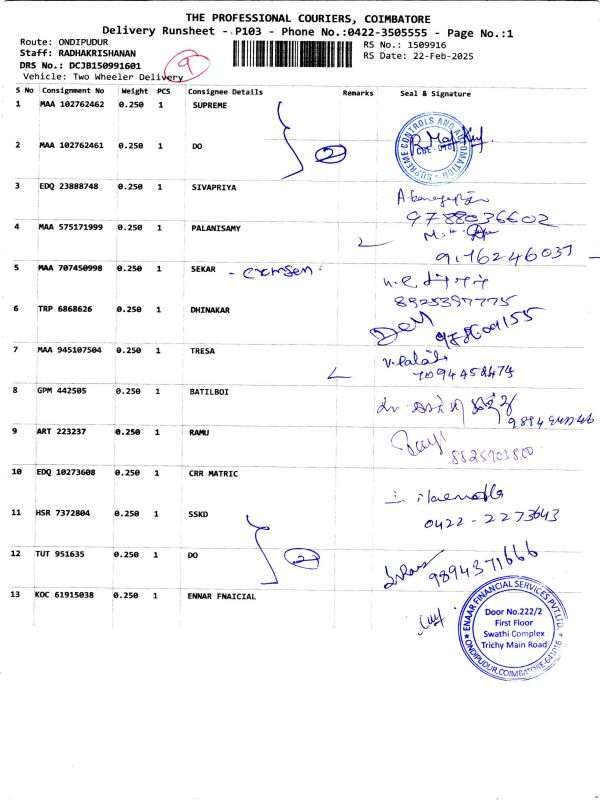 THE PROFESSIONAL COURIERS, COIMBATORE
Delivery Runsheet - P103 - Phone No.:0422-3505555 - Page No.:1
Route: ONDIPUDUR
RS No.: 1509916
Staff: RADHAKRISHANAN
RS Date: 22-Feb-2025
DRS No.: DCJB150991601
9
Vehicle: Two Wheeler Delivery
S No Consignment No Weight PCS Consignee Details Remarks Seal & Signature
1 MAA 102762462 0.250 1 SUPREME
2 MAA 102762461 0.250 1 DO
2
SUPREME CONTROLS AND AUTOMATION
3 EDQ 23888748 0.250 1 SIVAPRIYA
9788036602
4 MAA 575171999 0.250 1 PALANISAMY
9176246037
5 MAA 707450998 0.250 1 SEKAR
8925397775
6 TRP 6868626 0.250 1 DHINAKAR
7 MAA 945107504 0.250 1 TRESA
8 GPM 442505 0.250 1 BATILBOI
9 ART 223237 0.250 1 RAMU
10 EDQ 10273608 0.250 1 CRR MATRIC
11 HSR 7372804 0.250 1 SSKD
0422-2273643
12 TUT 951635 0.250 1 DO
2
9894371666
13 KOC 61915038 0.250 1 ENNAR FNAICIAL
ENAAR FINANCIAL SERVICES PVT.LTD.
Door No.222/2
First Floor
Swathi Complex
Trichy Main Road
ONDIPUDUR,COIMBATORE-641016